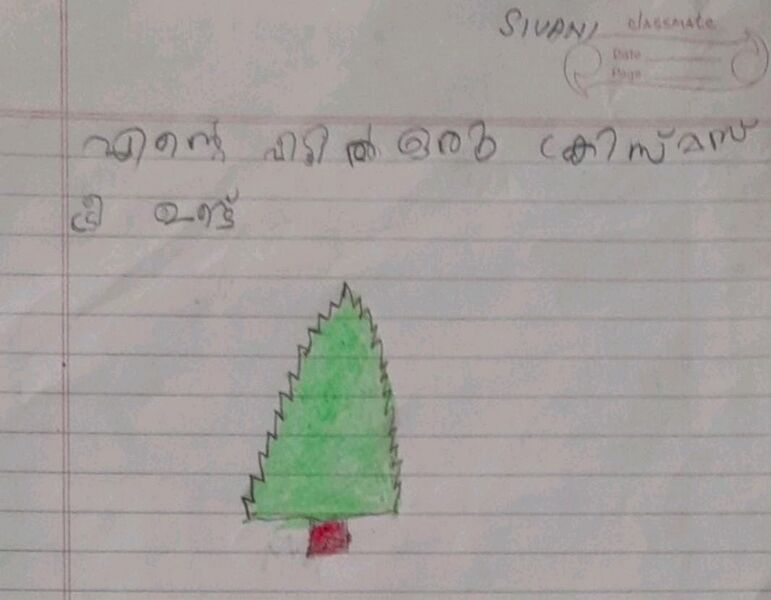 SIVANI classmate
Date
Page
എന്റെ വീട്ടിൽ ഒരു ക്രിസ്മസ്
ട്രീ ഉണ്ട്